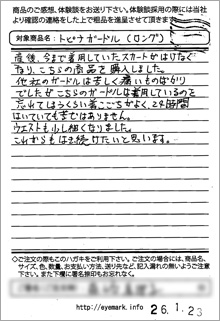 商品のご感想、体験談をお送り下さい。体験談採用の際には当社
より確認の連絡をした上で粗品を進呈させて頂きます。
対象商品名: トピナガードル (ロング)
産後、今まで着用していたスカートがはけなく
なり、こちらの商品を購入しました。
他社のガードルは苦しく痛いものばかり
でしたがこちらのガードルは着用しているのを
忘れてしまうくらい着ごこちがよく、24時間
はいていても苦ではありません。
ウエストも少し細くなりました。
これからもはき続けたいと思います。
◇ご注文の際もこのハガキをご利用下さい。ご注文の場合には、商品名、
サイズ、色、数量、お支払い方法、送り先など、記入漏れの無いようご注意
下さい。また下欄に署名捺印もお忘れなく。
http://eyemark.info
26.1.23